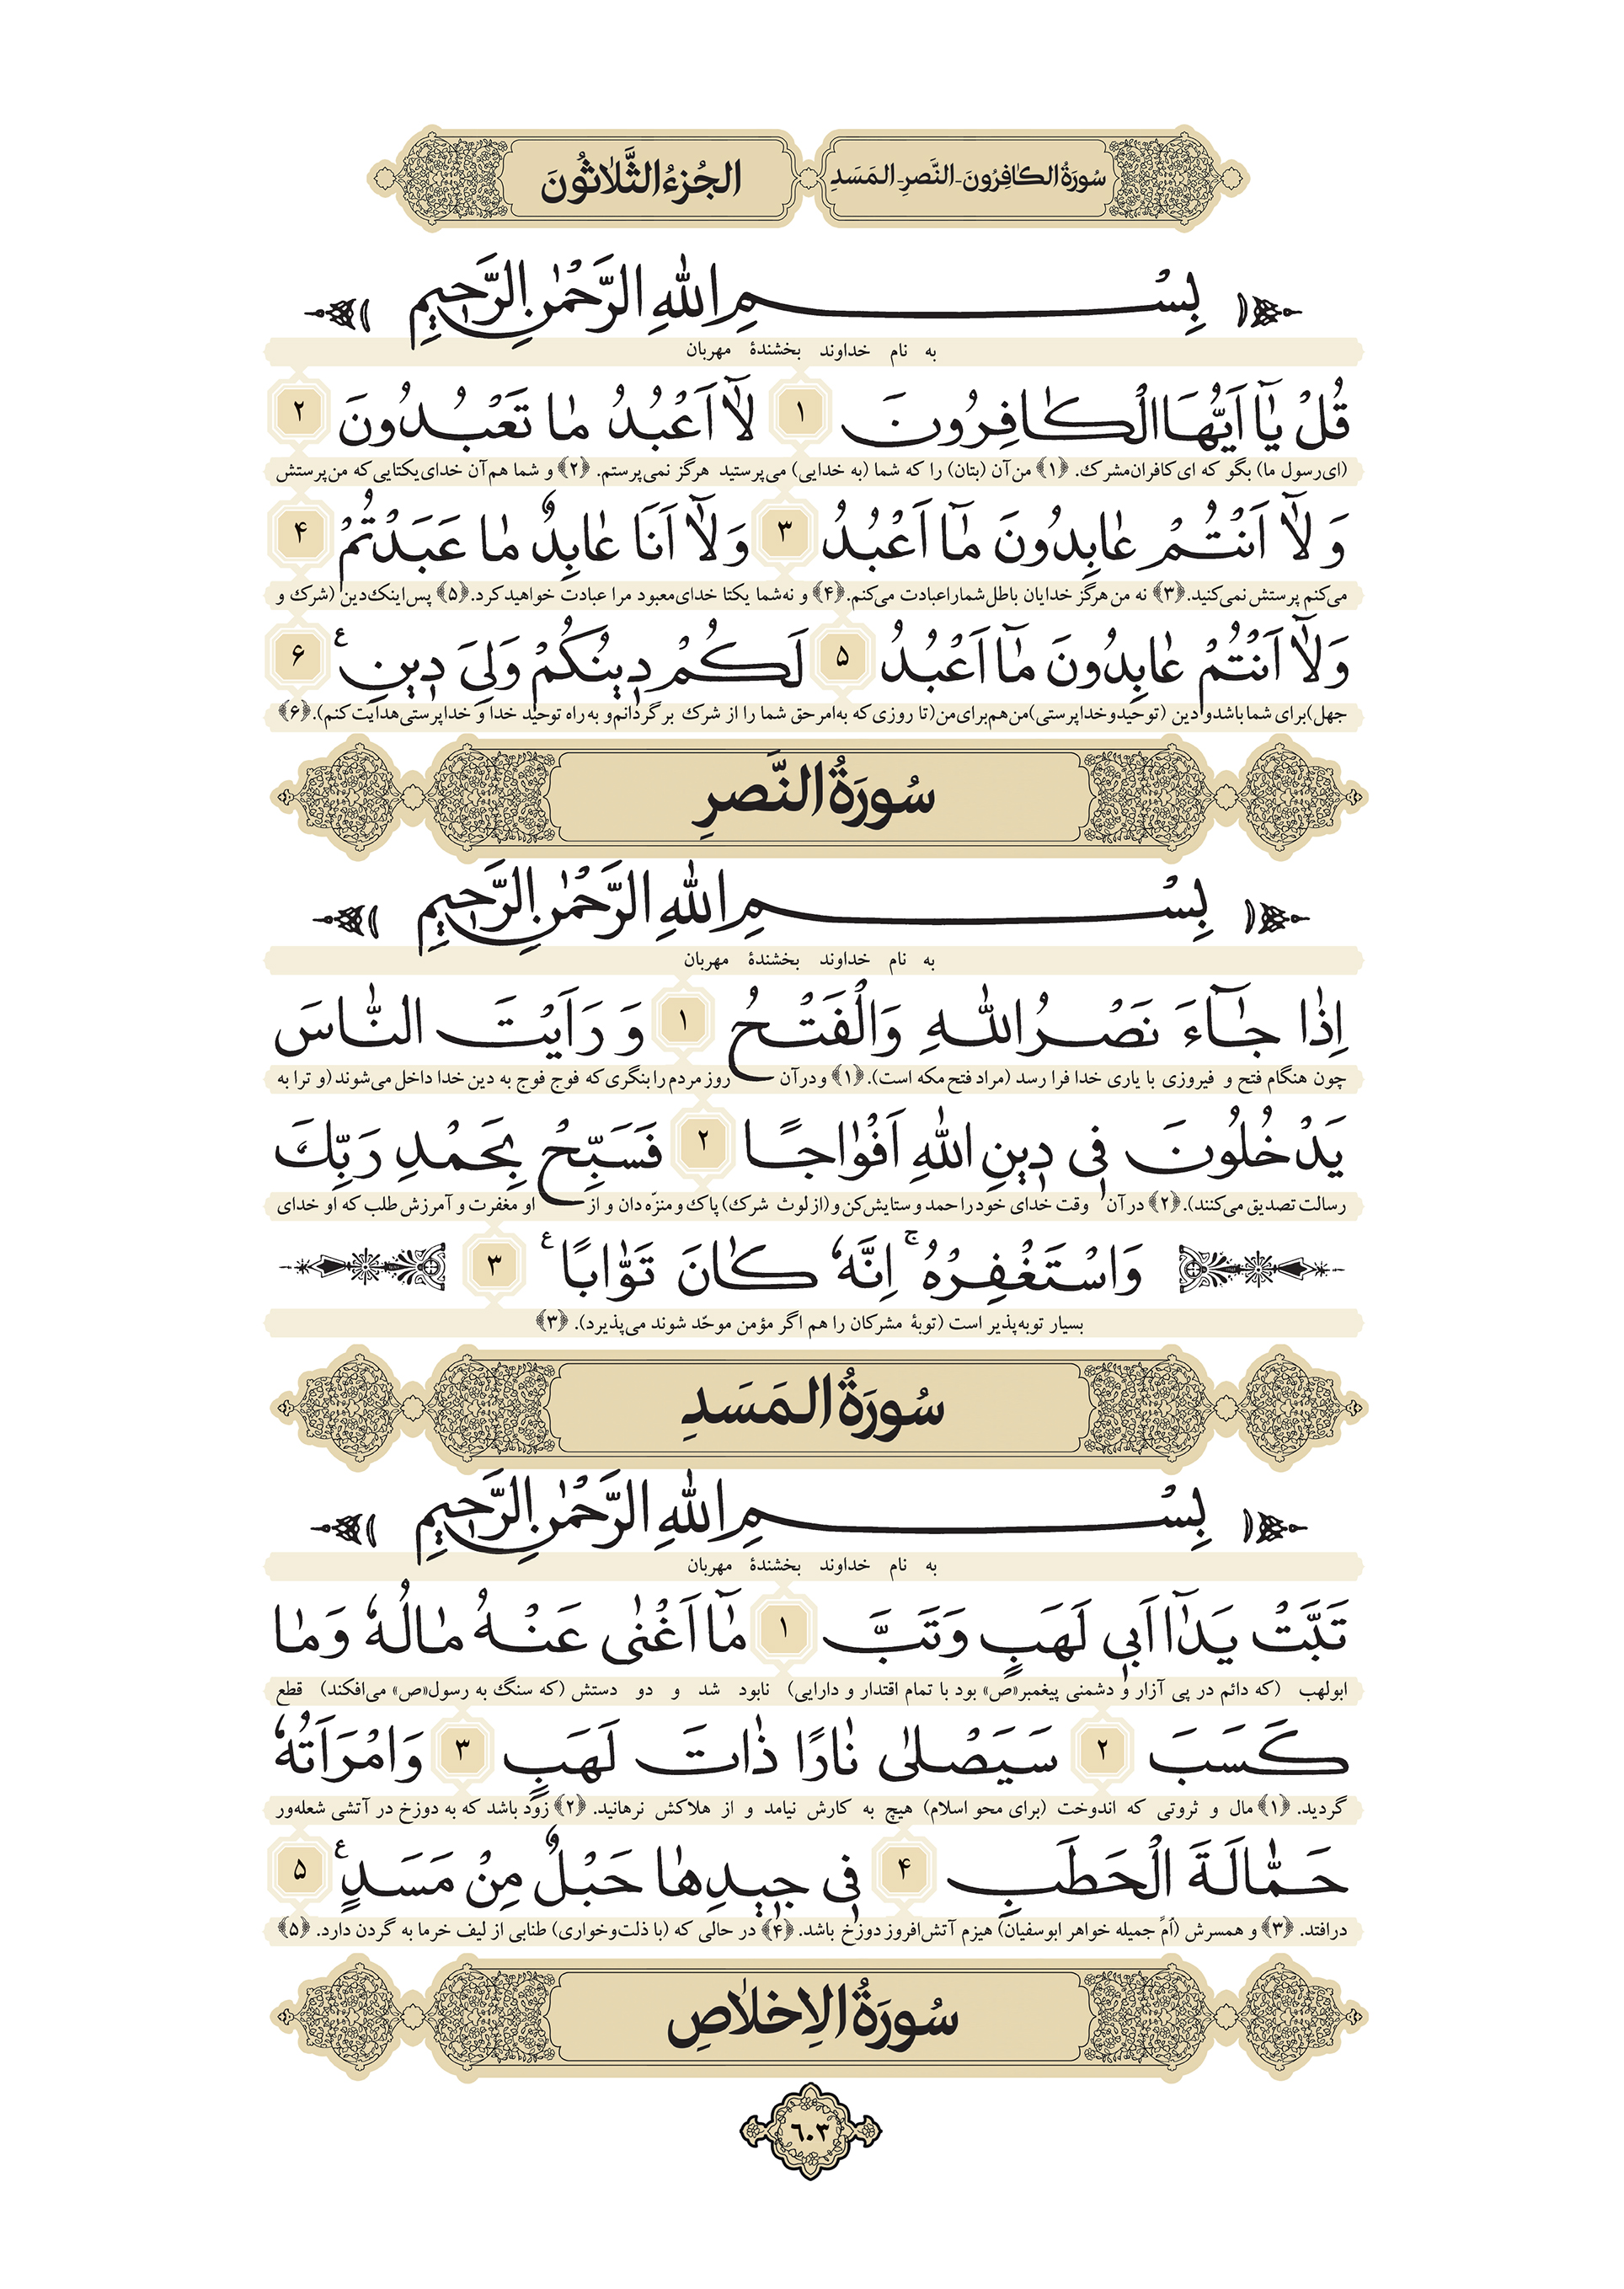 سُورَةُ الكٰافِرُونَ-النَّصرِ-المَسَدِ
الجُزءُ الثَّلاٰثُونَ
بِسْمِ اللّٰهِ الرَّحْمٰنِ الرَّحِيمِ
به نام خداوند بخشندهٔ مهربان
قُلْ يٰٓا اَيُّهَا الْكٰافِرُونَ ۱ لٰٓا اَعْبُدُ مٰا تَعْبُدُونَ ۲
(ای رسول ما) بگو که ای کافران مشرک. ﴿۱﴾ من آن (بتان) را که شما (به خدایی) می‌پرستید هرگز نمی‌پرستم. ﴿۲﴾ و شما هم آن خدای یکتایی که من پرستش
وَ لٰٓا اَنْتُمْ عٰابِدُونَ مٰٓا اَعْبُدُ ۳ وَ لٰٓا اَنَا عٰابِدٌ مٰا عَبَدْتُمْ ۴
می‌کنم پرستش نمی‌کنید. ﴿۳﴾ نه من هرگز خدایان باطل شما را عبادت می‌کنم. ﴿۴﴾ و نه شما یکتا خدای معبود مرا عبادت خواهید کرد. ﴿۵﴾ پس اینک دین (شرک و
وَ لٰٓا اَنْتُمْ عٰابِدُونَ مٰٓا اَعْبُدُ ۵ لَكُمْ دِينُكُمْ وَلِيَ دِينِ ۶
جهل) برای شما باشد و دین (توحید و خداپرستی) من هم برای من (تا روزی که به امر حق شما را از شرک برگردانم و به راه توحید خدا و خداپرستی هدایت کنم). ﴿۶﴾
سُورَةُ النَّصرِ
بِسْمِ اللّٰهِ الرَّحْمٰنِ الرَّحِيمِ
به نام خداوند بخشندهٔ مهربان
اِذٰا جٰٓاءَ نَصْرُ اللّٰهِ وَالْفَتْحُ ۱ وَ رَاَيْتَ النّٰاسَ
چون هنگام فتح و فیروزی با یاری خدا فرا رسد (مراد فتح مکه است). ﴿۱﴾ و در آن روز مردم را بنگری که فوج فوج به دین خدا داخل می‌شوند (و ترا به
يَدْخُلُونَ فِي دِينِ اللّٰهِ اَفْوٰاجًا ۲ فَسَبِّحْ بِحَمْدِ رَبِّكَ
رسالت تصدیق می‌کنند). ﴿۲﴾ در آن وقت خدای خود را حمد و ستایش کن و (از لوث شرک) پاک و منزّه دان و از او مغفرت و آمرزش طلب که او خدای
وَاسْتَغْفِرْهُ ۚ اِنَّهُ كٰانَ تَوّٰابًا ۳
بسیار توبه‌پذیر است (توبهٔ مشرکان را هم اگر مؤمن موحّد شوند می‌پذیرد). ﴿۳﴾
سُورَةُ المَسَدِ
بِسْمِ اللّٰهِ الرَّحْمٰنِ الرَّحِيمِ
به نام خداوند بخشندهٔ مهربان
تَبَّتْ يَدٰٓا اَبِي لَهَبٍ وَتَبَّ ۱ مٰٓا اَغْنٰى عَنْهُ مٰالُهُ وَمٰا
ابولهب (که دائم در پی آزار و دشمنی پیغمبر«ص» بود با تمام اقتدار و دارایی) نابود شد و دو دستش (که سنگ به رسول«ص» می‌افکند) قطع
كَسَبَ ۲ سَيَصْلىٰ نٰارًا ذٰاتَ لَهَبٍ ۳ وَامْرَاَتُهُ
گردید. ﴿۱﴾ مال و ثروتی که اندوخت (برای محو اسلام) هیچ به کارش نیامد و از هلاکش نرهانید. ﴿۲﴾ زود باشد که به دوزخ در آتشی شعله‌ور
حَمّٰالَةَ الْحَطَبِ ۴ فِي جِيدِهٰا حَبْلٌ مِنْ مَسَدٍ ۵
درافتد. ﴿۳﴾ و همسرش (اُمّ جمیله خواهر ابوسفیان) هیزم آتش‌افروز دوزخ باشد. ﴿۴﴾ در حالی که (با ذلت و خواری) طنابی از لیف خرما به گردن دارد. ﴿۵﴾
سُورَةُ الاِخلاٰصِ
٦٠٣